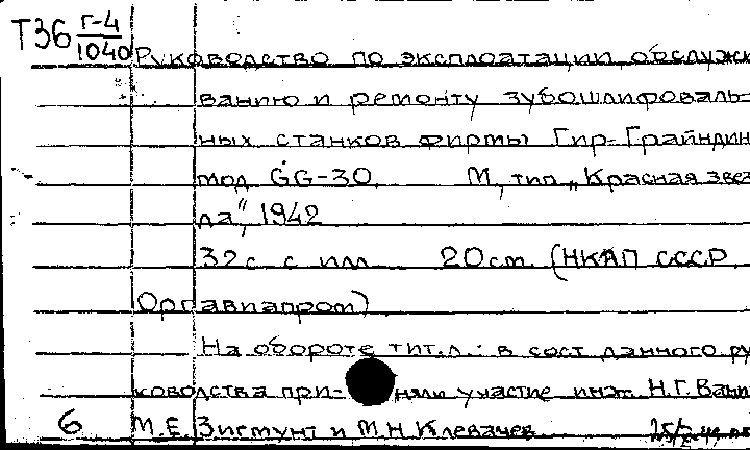 Т36 Г-4
1040
Руководство по эксплоатации, обслужи
ванию и ремонту зубошлифоваль-
ных станков фирмы Гир-Грайндин
мод GG-30. М, тип „Красная звез
да", 1942
32 с с илл 20 см. (НКАП СССР
Оргавиапром)
На обороте тит.л.: в сост данного ру
ководства при- няли участие инж. Н.Г.
6 М.Е. Зигмунт и М.Н Клевачев